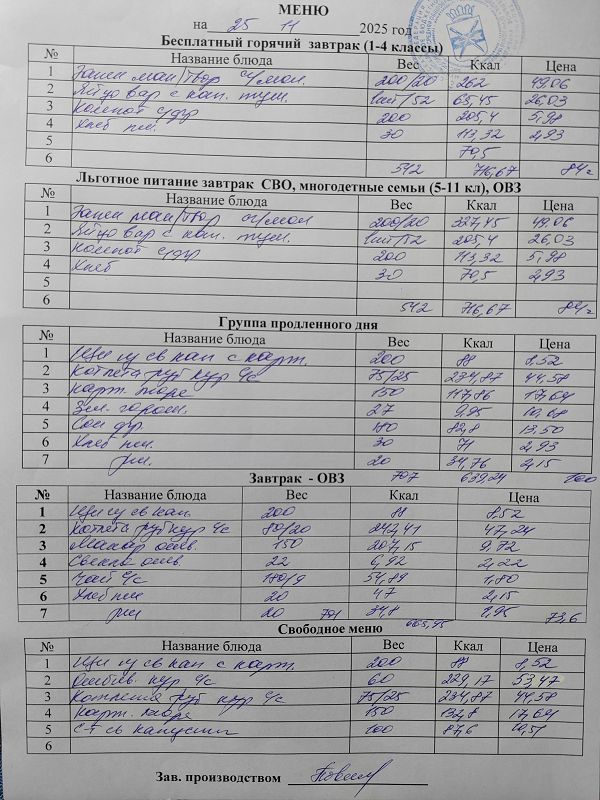 МЕНЮ
на 25 11 2025 год
Бесплатный горячий завтрак (1-4 классы)
№ Название блюда Вес Ккал Цена
1 Запек ман/твор сг/мол. 200/20 262 49,06
2 Яйцо вар с кон. 1шт/52 65,45 26,03
3 Компот с/фр 200 205,4 5,98
4 Хлеб пш. 30 113,32 2,93
5 70,5
6 542 716,67 84
Льготное питание завтрак СВО, многодетные семьи (5-11 кл), ОВЗ
№ Название блюда Вес Ккал Цена
1 Запек ман/твор сг/мол 200/20 327,45 49,06
2 Яйцо вар с кон. 1шт/52 205,4 26,03
3 Компот с/фр 200 113,32 5,98
4 Хлеб 30 70,5 2,93
5
6 542 716,67 84
Группа продленного дня
№ Название блюда Вес Ккал Цена
1 Щи из св кап с карт. 200 88 8,52
2 Котлета руб кур 75/25 234,87 44,58
3 карт. пюре 150 17,64
4 Зел. горош. 27 9,95
5 Сок фр. 180 82,8 13,50
6 Хлеб пш. 30 71 2,93
7 рж. 20 34,76 2,15
707 639,24 100
Завтрак - ОВЗ
№ Название блюда Вес Ккал Цена
1 Щи из св кап 200 88 8,52
2 Котлета руб кур 80/20 242,41 47,24
3 Макар отв. 150 207,15 9,72
4 Свекла отв. 22 6,92 2,22
5 Чай 180/9 54,89 1,80
6 Хлеб пш 20 47 2,15
7 рж 20 701 34,8 1,95 73,6
Свободное меню
№ Название блюда Вес Ккал Цена
1 Щи из св кап с карт. 200 88 8,52
2 кур 60 229,17 53,47
3 Котлета руб кур 75/25 234,87 44,58
4 карт. пюре 150 132,8 17,64
5 с-т св капусты 100 87,6 10,51
6
Зав. производством